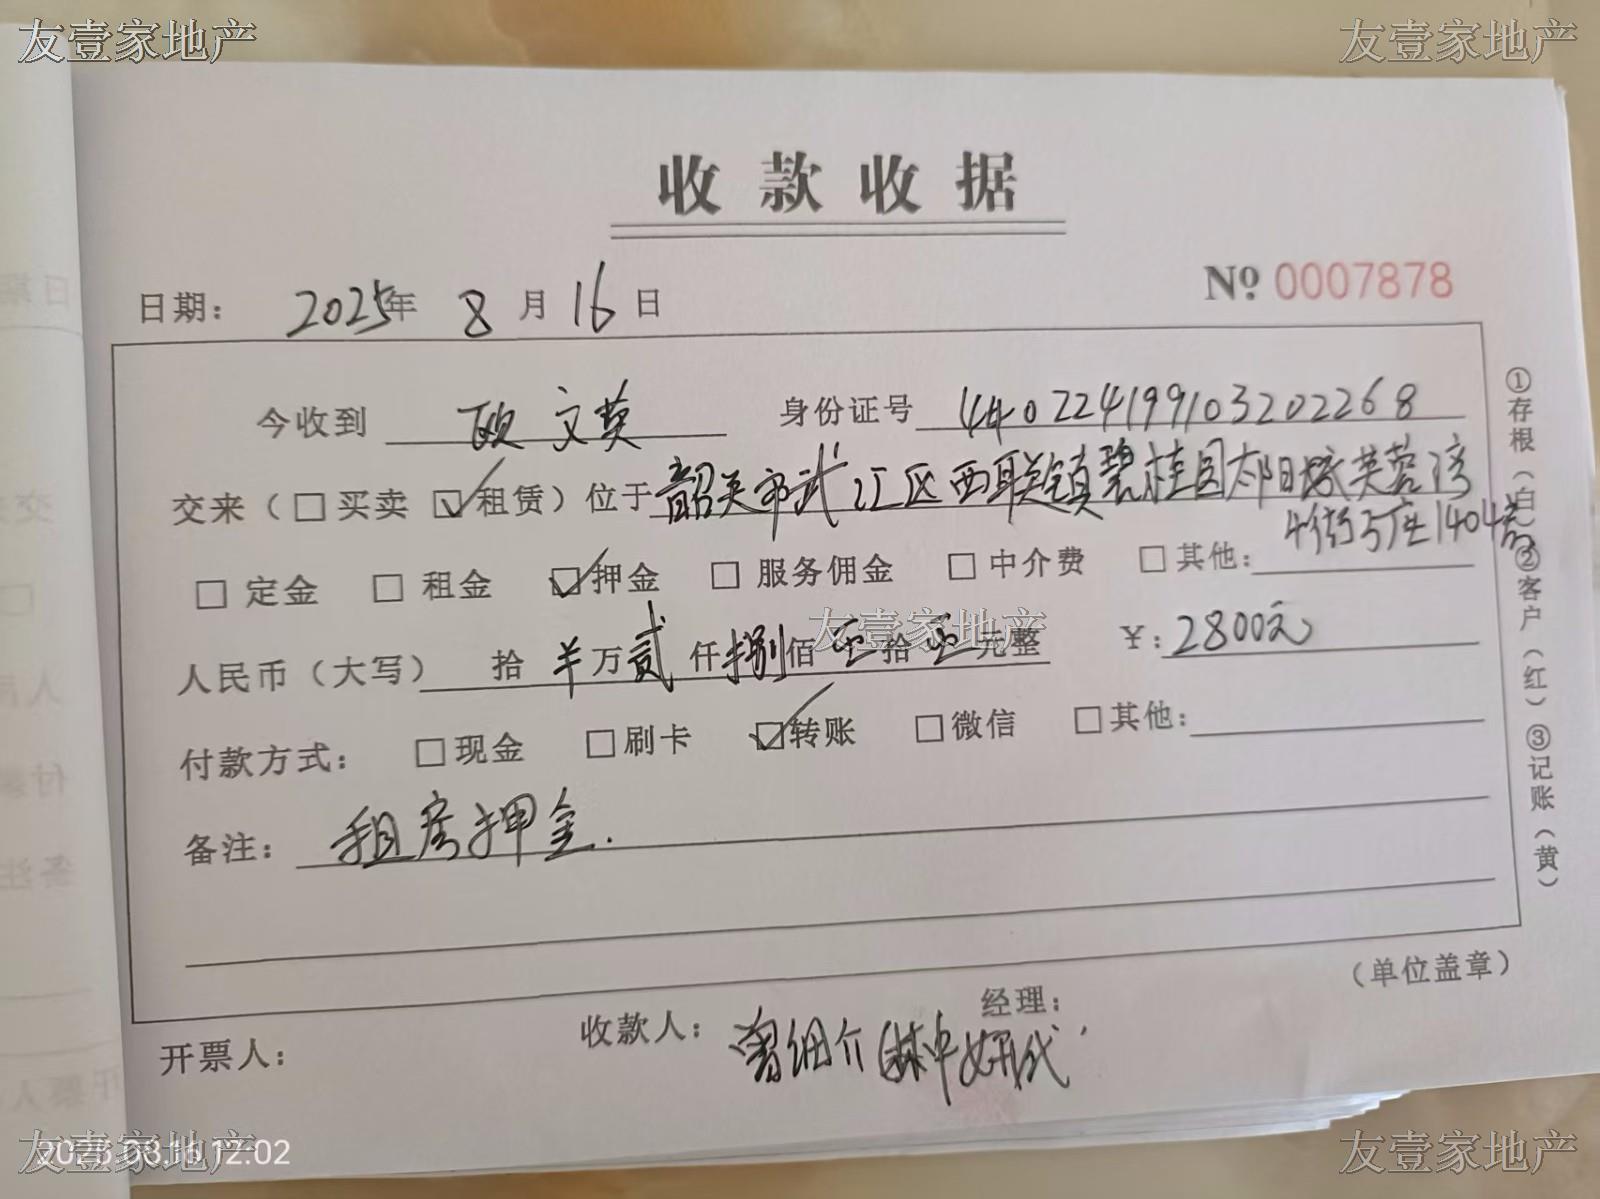 友壹家地产 友壹家地产
收款收据
№ 0007878
日期： 2025年 8月16日
今收到 欧文英 身份证号 440224199103202268
交来（□买卖 ☑租赁）位于韶关市武江区西联镇碧桂园太阳城芙蓉湾
4街5座1404房
□定金 □租金 ☑押金 □服务佣金 □中介费 □其他：
友壹家地产
人民币（大写） 拾 万贰仟捌佰 拾 元整 ￥：2800元
付款方式： □现金 □刷卡 ☑转账 □微信 □其他：
备注： 租房押金.
（单位盖章）
开票人： 收款人： 曾细介 经理：
①存根（白）②客户（红）③记账（黄）
友壹家地产 友壹家地产
2025.08.16 12:02